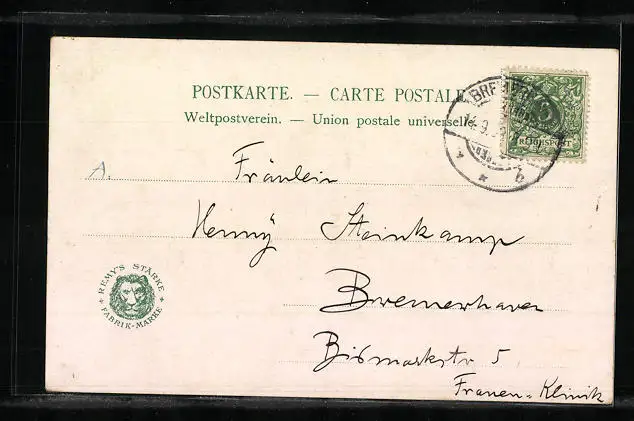 POSTKARTE. — CARTE POSTALE
Weltpostverein. — Union postale universelle
REICHSPOST
A.
Fräulein
Henny Steinkamp
REMY'S STÄRKE
FABRIK-MARKE
Bremerhaven
Bismarkstr 5
Frauen-Klinik